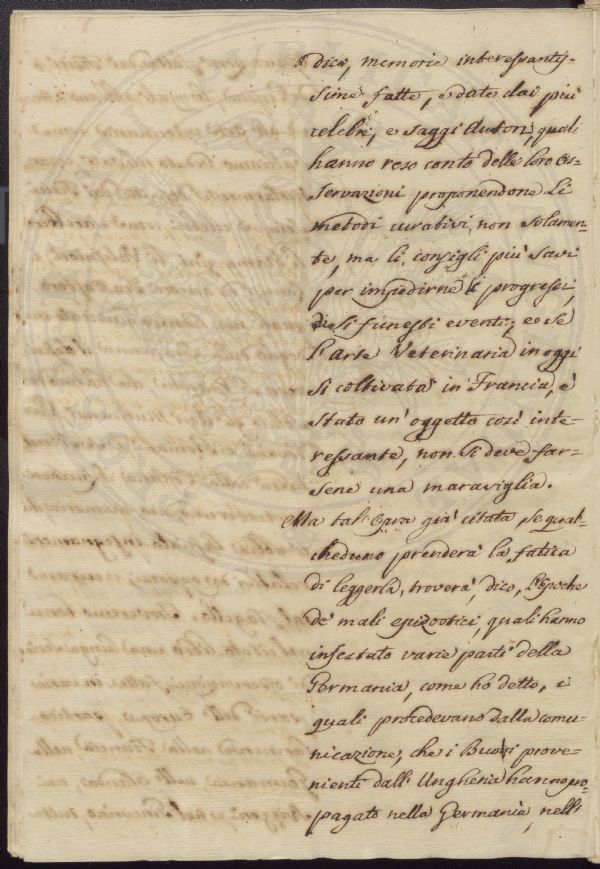 dica, memorie interessantis-
sime fatte, e date dai più
celebri, e saggi Autori, quali
hanno reso conto delle loro os-
servazioni proponendone li
metodi curativi, non solamen-
te, ma li consigli più savi
per impedirne li progressi,
e si funesti eventi; e se
l'arte Veterinaria in oggi
si coltivata in Francia, è
stato un' oggetto così inte-
ressante, non si deve far-
sene una maraviglia.
Ma tal' Opra già citata se qual-
cheduno prenderà la fatica
di leggerla, troverà, dico, l'Epoche
de' mali epizootici, quali hanno
infestato varie parti della
Germania, come ho detto, i
quali procedevano dalla comu-
nicazione, che i Buovi prove-
nienti dall' Ungheria hanno pro-
pagato nella Germania, nell'